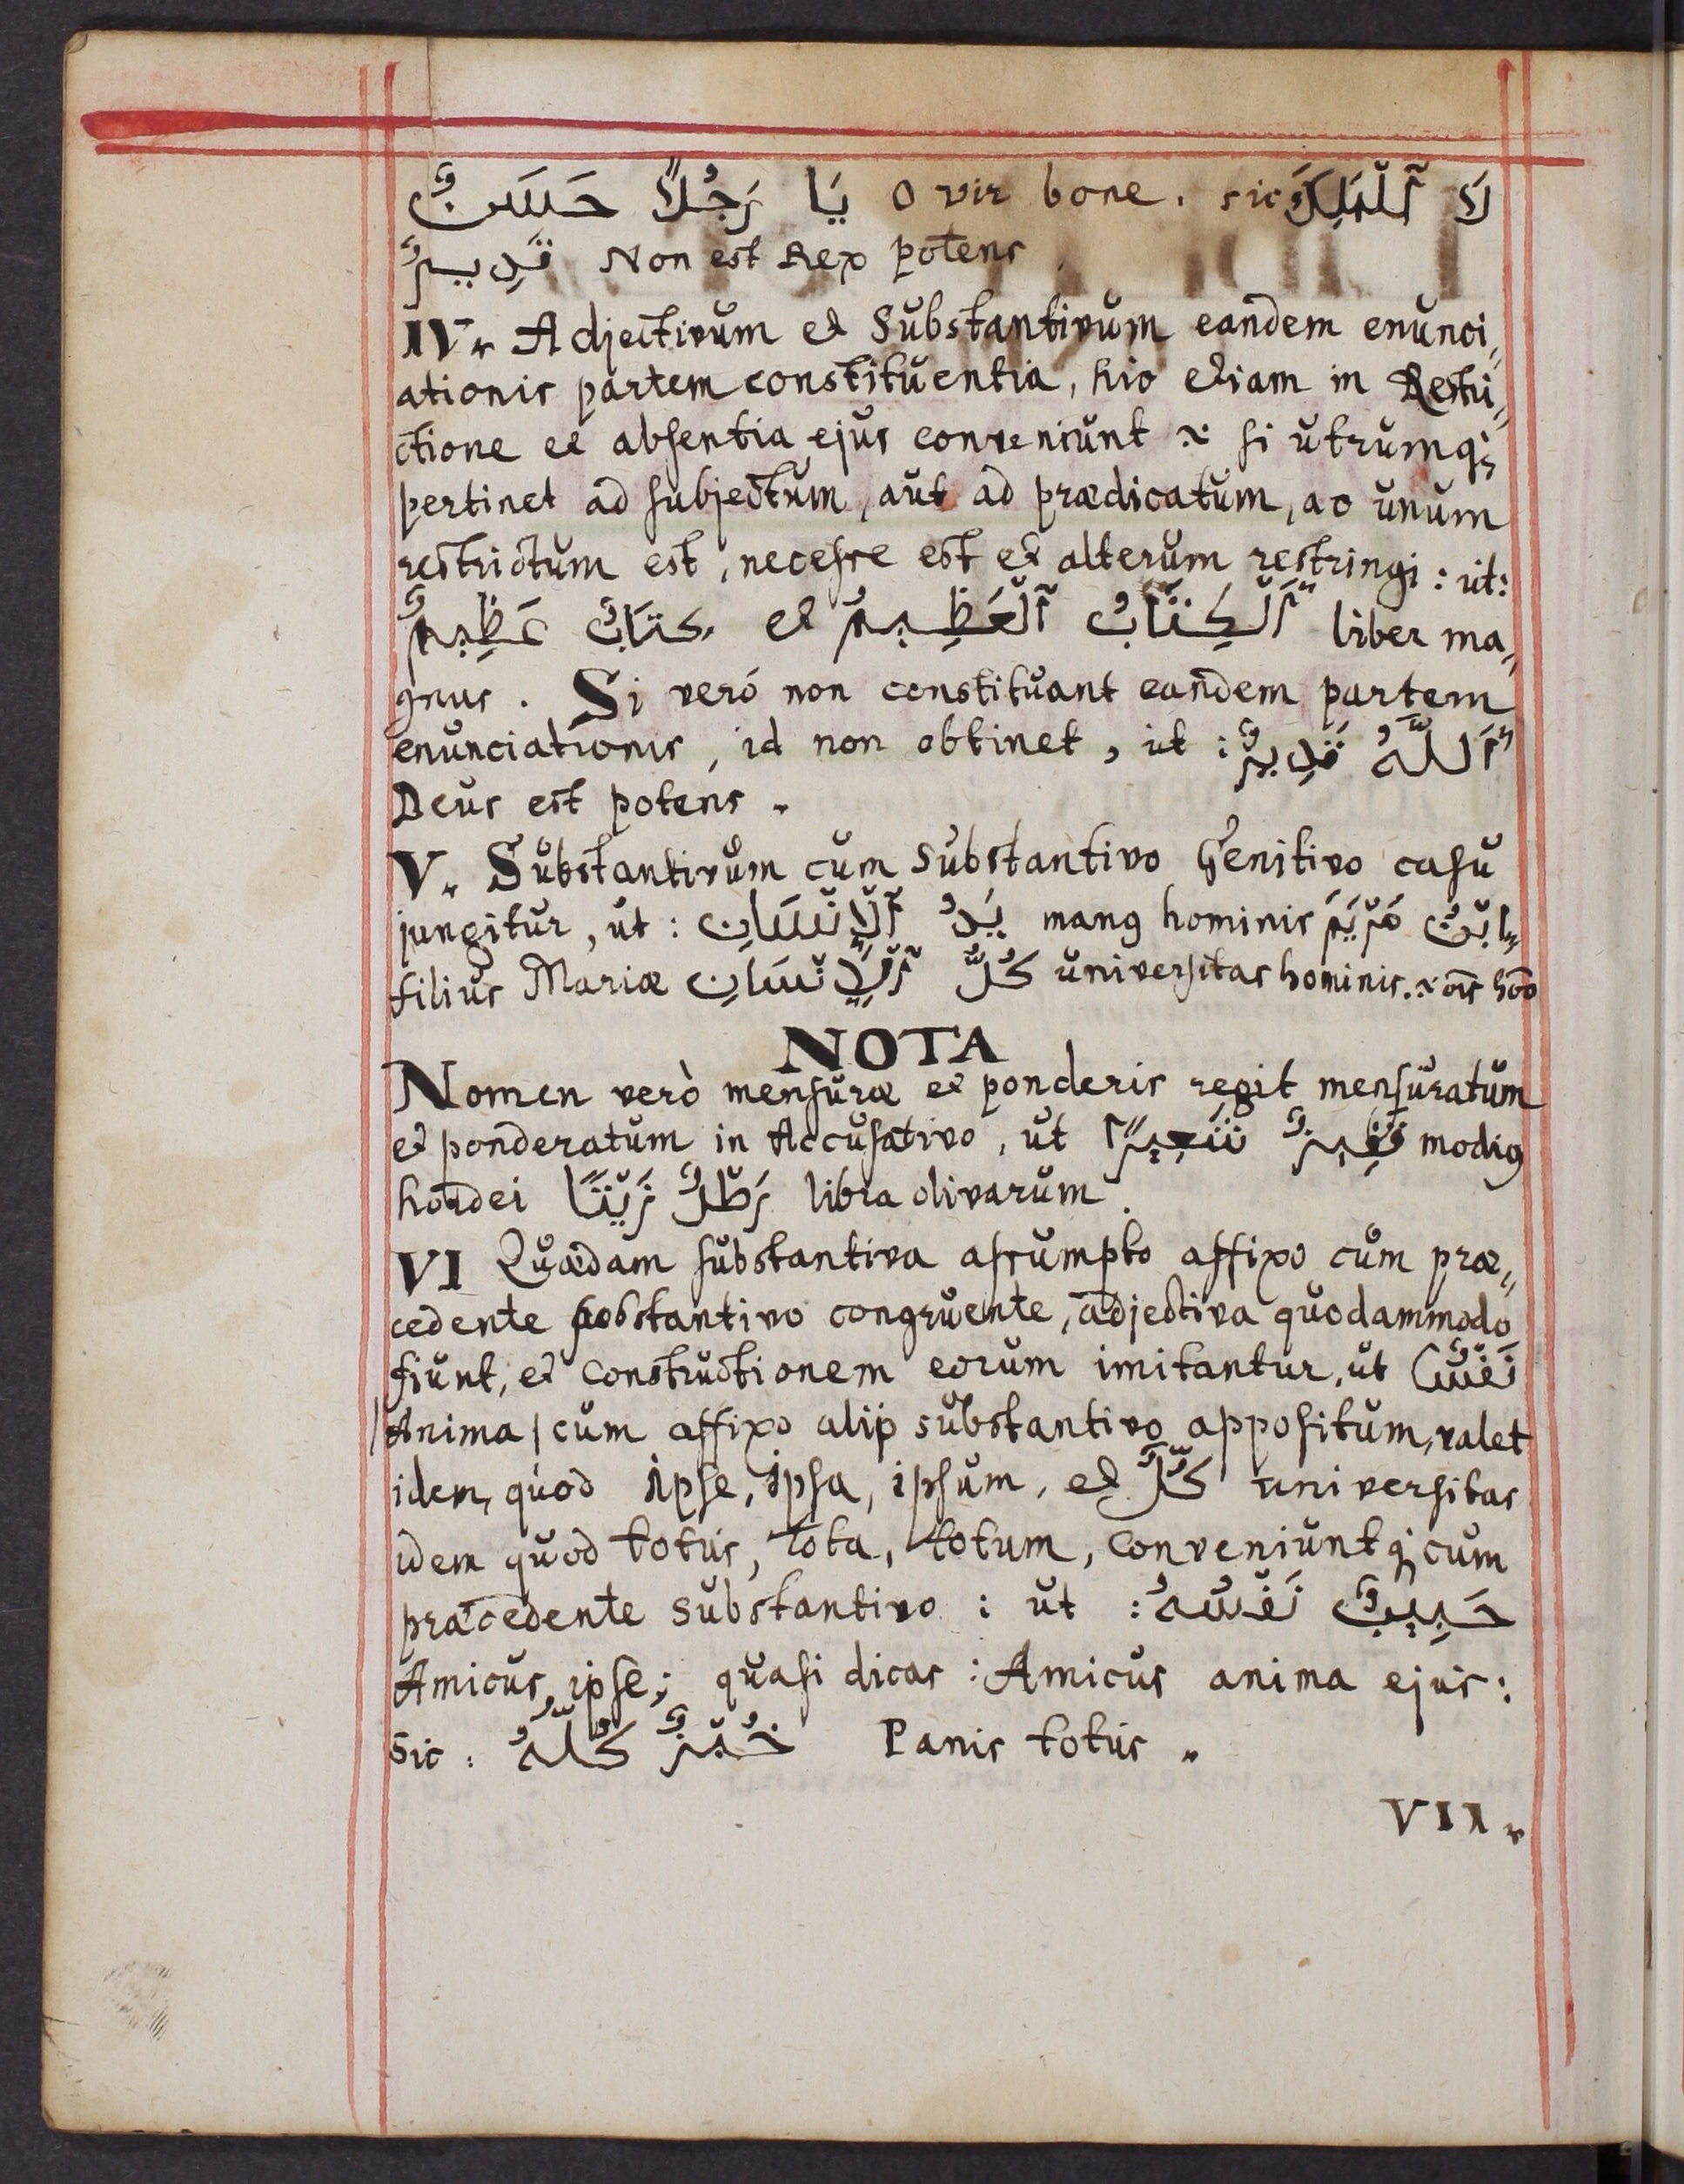 يَا رَجُلاً حَسَنٌ O vir bone. sic لَا ٱلْمَلِكَ
قَدِيرٌ Non est Rex potens
IV. Adjectivum et Substantivum eandem enunci„
ationis partem constituentia, hic etiam in Restri„
ctione et absentia ejus conveniunt si utrumq;
pertinet ad subjectum, aut ad prædicatum, ac unum
restrictum est, necesse est et alterum restringi: ut:
اَلْكِتَابُ ٱلْعَظِيمُ et كتَابٌ عَظِيمٌ liber ma„
gnus. Si veró non constituant eandem partem
enunciationis, id non obtinet, ut: اَللّٰهُ قَدِيرٌ
Deus est potens.
V. Substantivum cum Substantivo Genitivo casu
jungitur, ut: يَدُ ٱلْإِنْسَانِ manꝯ hominis ابْنُ مَرْيَمَ
filius Mariæ كُلُّ ٱلْإِنْسَانِ universitas hominis. oīs hōo
NOTA
Nomen verò mensuræ et ponderis regit mensuratum
et ponderatum in Accusativo, ut قَفِيزٌ شَعِيرًا modiꝯ
hordei رَطْلٌ زَيْتًا libra olivarum.
VI Quædam substantiva assumpto affixo cum præ„
cedente sobstantivo congruente, adjectiva quodammodo
fiunt, et constructionem eorum imitantur, ut نَفْسٌ
Anima cum affixo alij substantivo appositum, valet
idem, quod ipse, ipsa, ipsum, et كُلٌّ universitas
idem quod totus, tota, totum, conveniuntq; cum
præcedente substantivo: ut: حَبِيبٌ نَفْسُهُ
Amicus ipse; quasi dicas: Amicus anima ejus:
Sic: خُبْزٌ كُلُّهُ Panis totus.
VII.